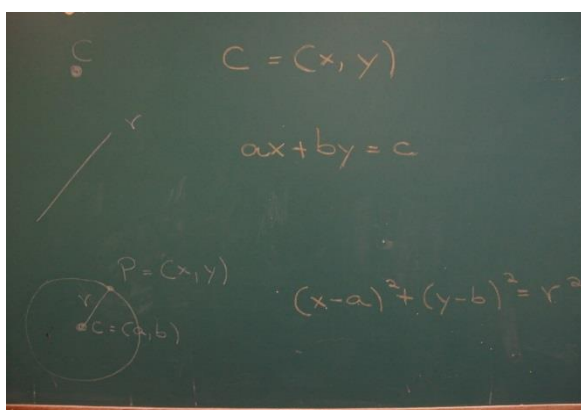 C
C = (x, y)
r
ax + by = c
P = (x, y)
r
C = (a, b)
(x-a)² + (y-b)² = r²